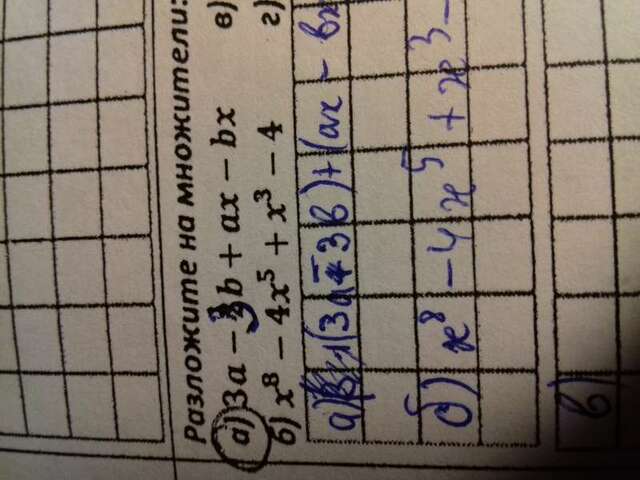 Разложите на множители:
а) 3a − 3b + ax − bx
в)
б) x⁸ − 4x⁵ + x³ − 4
г)
а) (3a − 3b) + (ax − bx
б) x⁸ − 4x⁵ + x³ −
в)